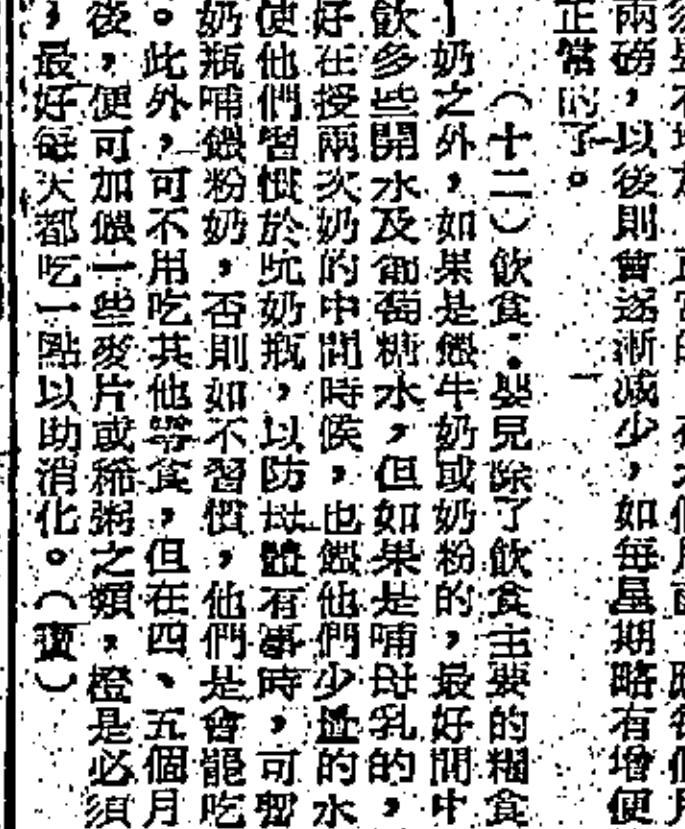 兩磅，以後則會逐漸減少，如每星期略有增便
正常的了。
（十二）飲食：嬰兒除了飲食主要的糧食
奶之外，如果是餵牛奶或奶粉的，最好間中
飲多些開水及葡萄糖水，但如果是哺母乳的，
好在授兩次奶的中間時候，也餵他們少量的水
使他們習慣於吮奶瓶，以防母體有事時，可暫
奶瓶哺餵粉奶，否則如不習慣，他們是會龍吃
。此外，可不用吃其他等食，但在四、五個月
後，便可加餵一些麥片或稀粥之類，橙是必須
，最好每天都吃一點以助消化。（寶）